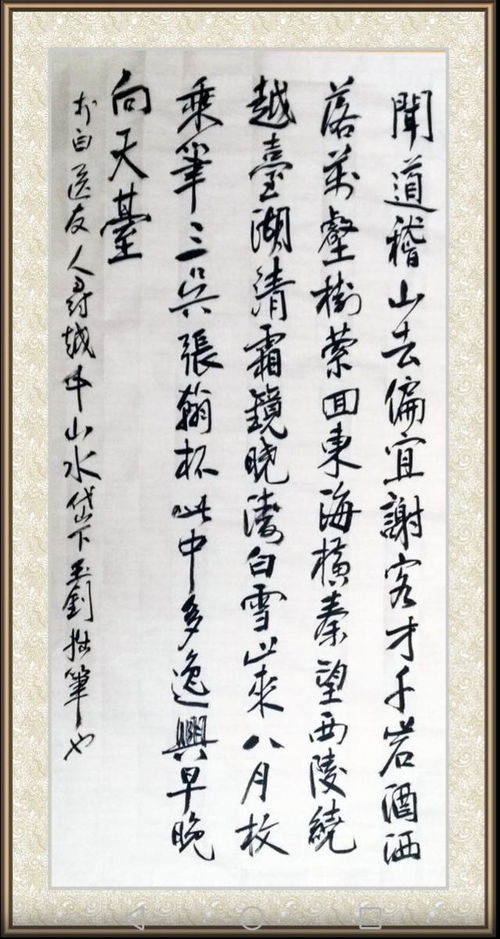 聞道稽山去偏宜謝客才千岩酒洒
落萬壑樹縈回東海横秦望西陵繞
越臺湖清霜鏡晓濤白雪山來八月枚
乘筆三吳張翰杯此中多逸興早晚
向天臺
白送友人尋越中山水岱下釗拙筆也